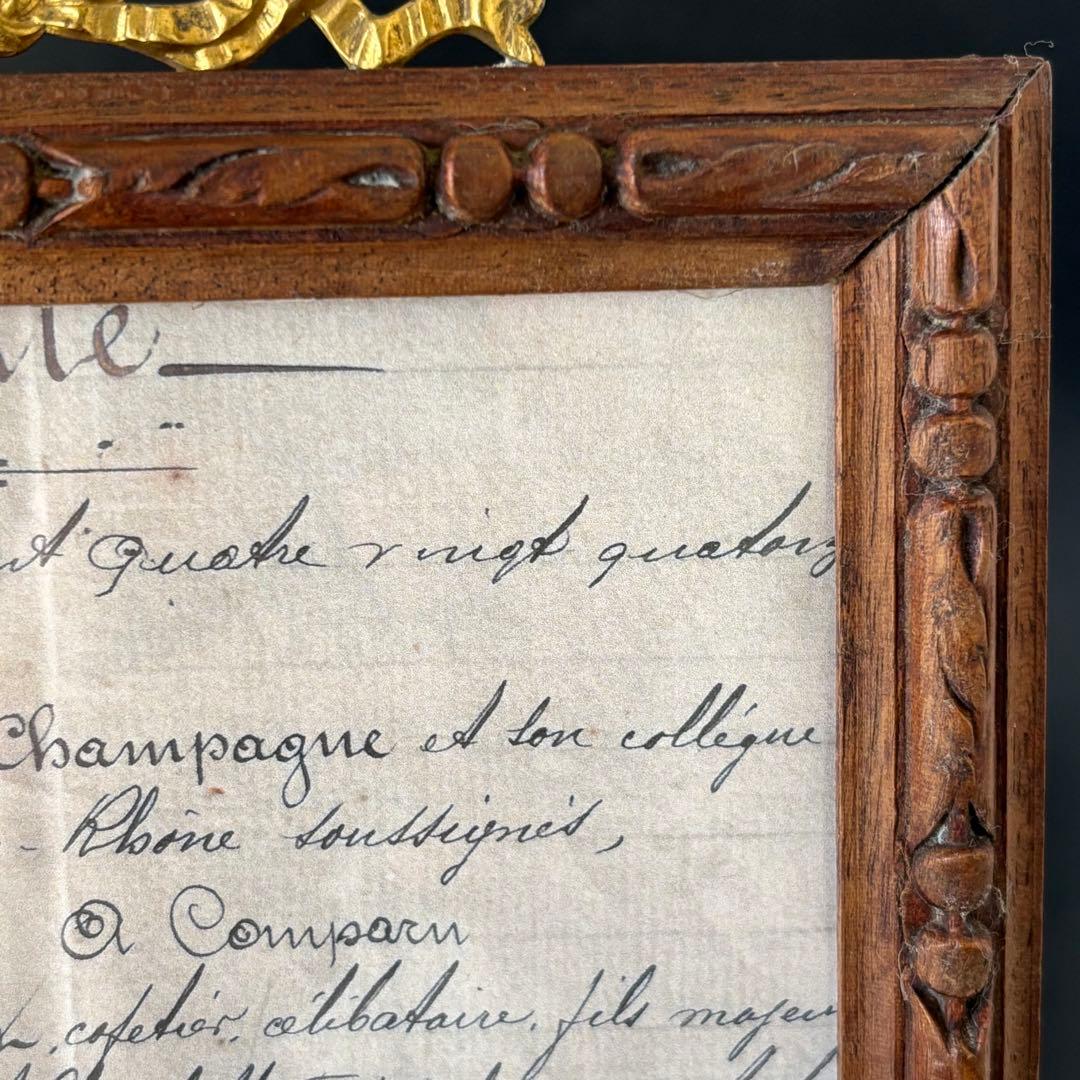 Quatre vingt quatorz
Champagne et son collégue
- Rhône soussignés,
A Comparu
, cafetier, célibataire, fils majeur